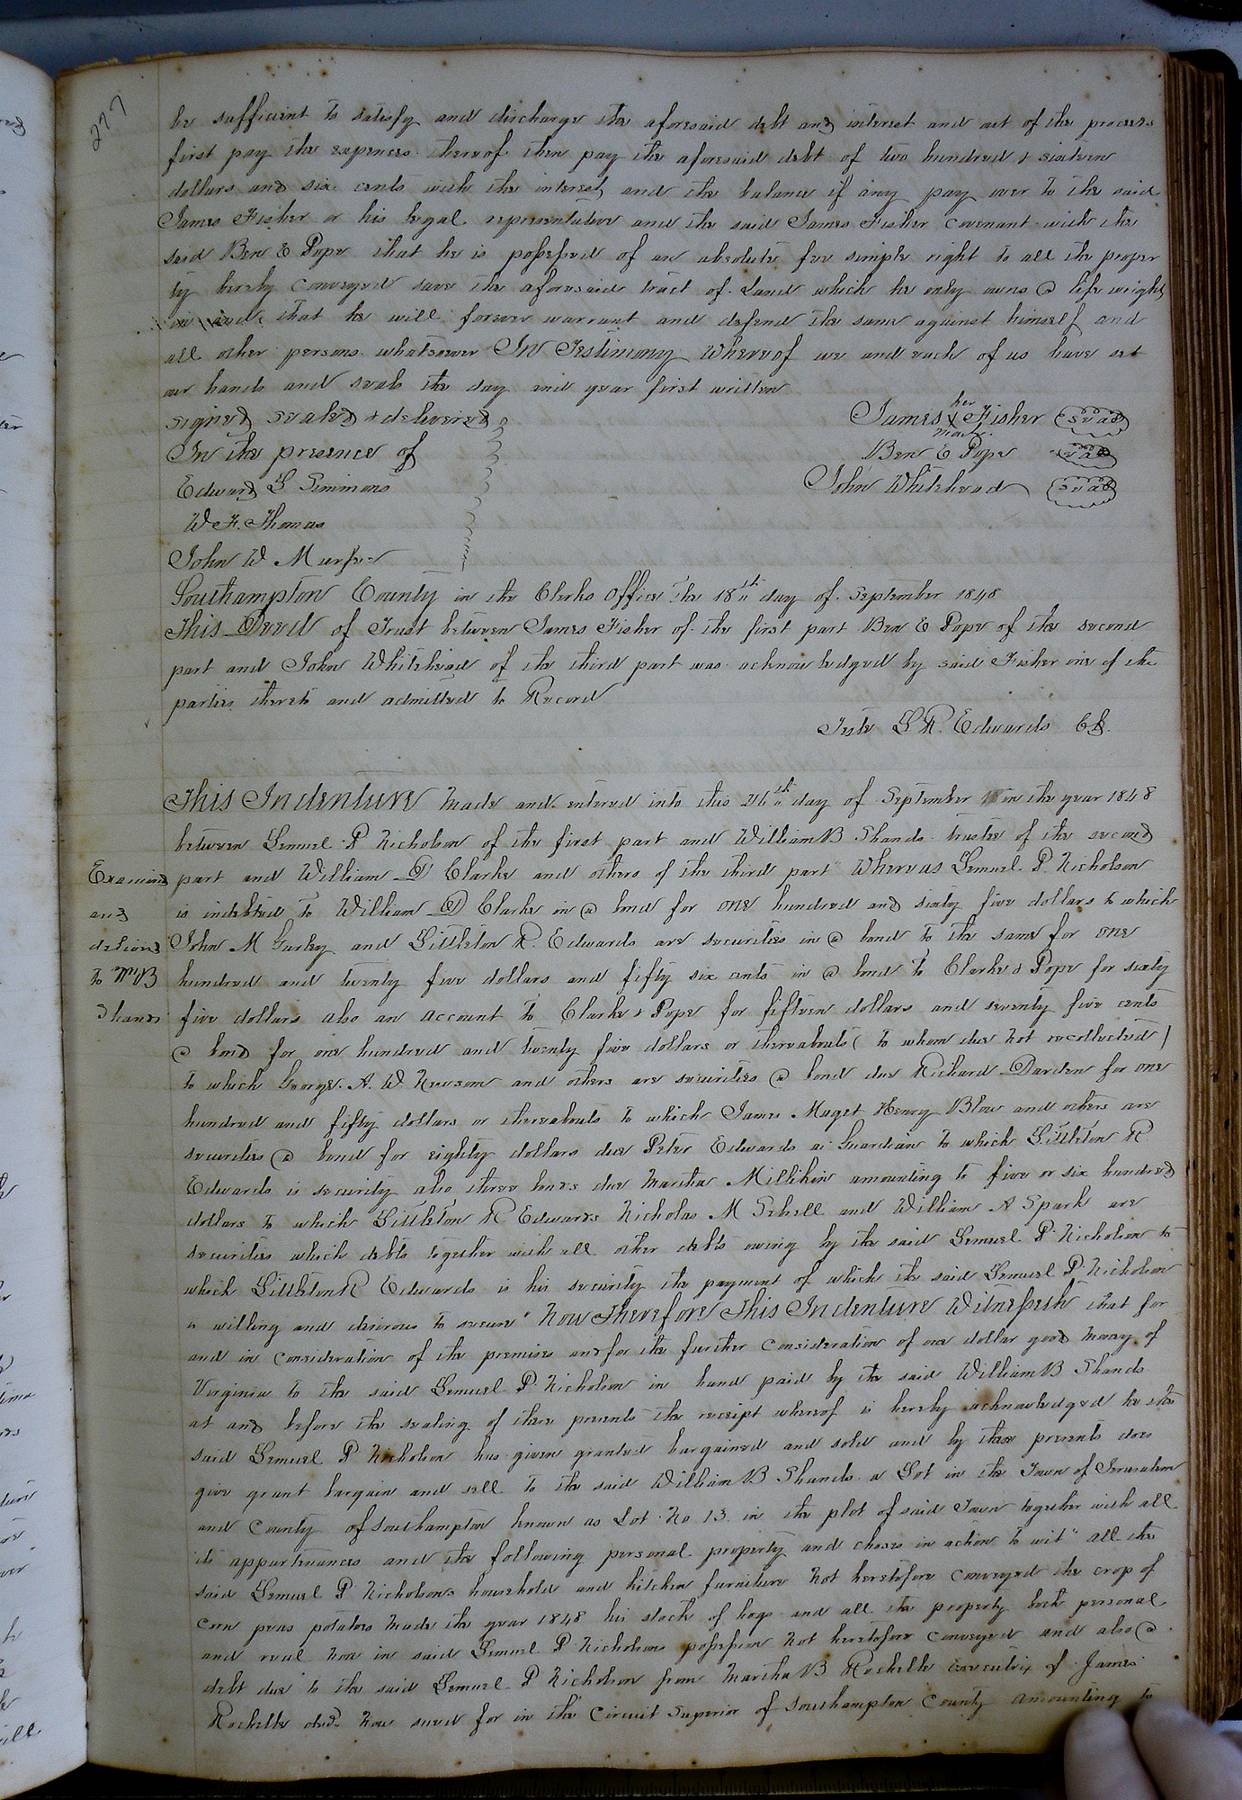 277
be sufficient to satisfy and discharge the aforesaid debt and interest and out of the proceeds
first pay the expences thereof then pay the aforesaid debt of two hundred & sixteen
dollars and six cents with the interest and the balance if any pay over to the said
James Fisher or his legal representative and the said James Fisher covenant with the
said Ben E Pope that he is possessed of an absolute fee simple right to all the proper
ty hereby conveyed save the aforesaid tract of Land which he only owns a life
that he will forever warrant and defend the same against himself and
all other persons whatsoever In Testimony Whereof we and each of us have set
our hands and seals the day and year first written
signed sealed & delivered
In the presence of
Edward G Simmons
W. F. Thomas
John W
her
James X Fisher (seal)
mark
Ben E Pope (seal)
John Whitehead (seal)
Southampton County in the Clerks Office The 18th day of September 1848
This Deed of Trust between James Fisher of the first part Ben E Pope of the second
part and John Whitehead of the third part was acknowledged by said Fisher one of the
parties thereto and admitted to Record
Teste L R. Edwards
This Indenture Made and entered into this 26th day of September in the year 1848
between Lemuel P Nicholson of the first part and William B Shands trustee of the second
Examined
and
delivered
To Wm B
Shands
part and William D Clarke and others of the third part Whereas Lemuel P. Nicholson
is indebted to William D Clarke in a bond for one hundred and sixty five dollars to which
John M Gurley and Littleton R. Edwards are securities in a bond to the same for one
hundred and twenty five dollars and fifty six cents in a bond to Clarke & Pope for sixty
five dollars also an account to Clarke & Pope for fifteen dollars and seventy five cents
a bond for one hundred and twenty five dollars or thereabouts ( to whom due not recollected )
to which George. A. W. Newsom and others are securities a bond due Richard Darden for one
hundred and fifty dollars or thereabouts to which James Maget Henry Blow and others are
securities a bond for eighty dollars due Peter Edwards as Guardian to which Littleton R
Edwards is security also three bonds due Martha Millikin amounting to five or six hundred
dollars to which Littleton R Edwards Nicholas M Sebrell and William A Spark are
securities which debts together with all other debts owing by the said Lemuel P. Nicholson to
which Littleton R Edwards is his security the payment of which the said Lemuel P. Nicholson
is willing and desirous to secure" Now Therefore This Indenture Witnesseth that for
and in consideration of the premises and for the further consideration of one dollar good money of
Virginia to the said Lemuel P. Nicholson in hand paid by the said William B Shands
at and before the sealing of these presents the receipt whereof is hereby acknowledged he the
said Lemuel P Nicholson has given granted bargained and sold and by these presents does
give grant bargain and sell to the said William B Shands a Lot in the Town of Jerusalem
and County of Southampton known as Lot No 13. in the plot of said Town together with all
its appurtenances and the following personal property and choses in action to wit" all the
said Lemuel P Nicholsons household and kitchen furniture not heretofore conveyed the crop of
corn peas potatoes made the year 1848 his stock of hogs and all the property both personal
and real now in said Lemuel P Nicholsons possession not heretofore conveyed and also a
debt due to the said Lemuel P Nicholson from Martha B Rochelle executrix of James
Rochelle decd. now sued for in the Circuit Superior of Southampton County amounting to